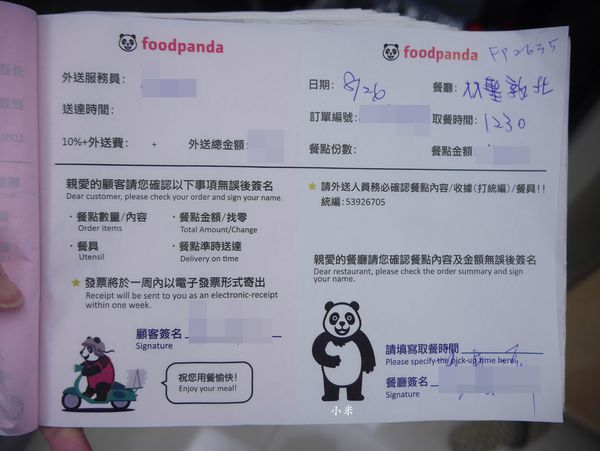 foodpanda
外送服務員:
送達時間:
10%+外送費: + 外送總金額:
親愛的顧客請您確認以下事項無誤後簽名
Dear customer, please check your order and sign your name.
・餐點數量/內容 ・餐點金額/找零
Order items Total Amount/Change
・餐具 ・餐點準時送達
Utensil Delivery on time
★ 發票將於一周內以電子發票形式寄出
Receipt will be sent to you as an electronic-receipt
within one week.
顧客簽名
Signature
祝您用餐愉快!
Enjoy your meal!
foodpanda FP2635
日期: 8/26 餐廳:
訂單編號: 取餐時間: 1230
餐點份數: 餐點金額:
★ 請外送人員務必確認餐點內容/收據(打統編)/餐具!!
統編:53926705
親愛的餐廳請您確認餐點內容及金額無誤後簽名
Dear restaurant, please check the order summary and sign
your name.
請填寫取餐時間
Please specify the pick-up time here.
餐廳簽名
Signature
小米